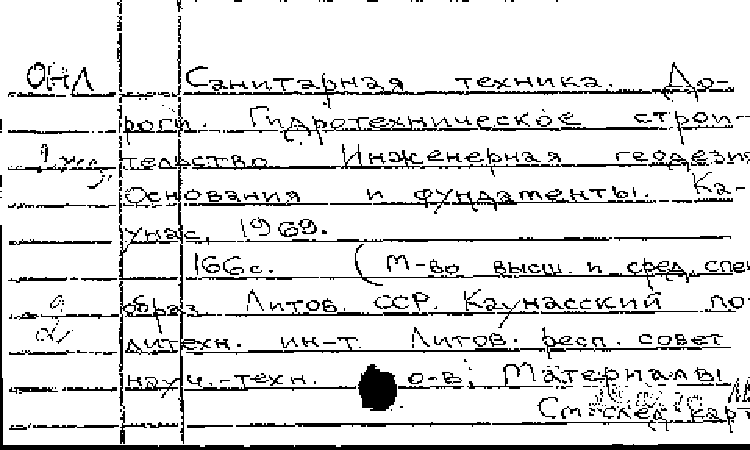 ОНЛ Санитарная техника. До-
роги. Гидротехническое строи-
тельство. Инженерная геодезия
Основания и фундаменты. Ка-
унас, 1969.
166с. (М-во высш. и сред. спец
образ. Литов. ССР. Каунасский по-
литехн. ин-т. Литов. респ. совет
науч.-техн. о-в; Материалы
См. след. карт